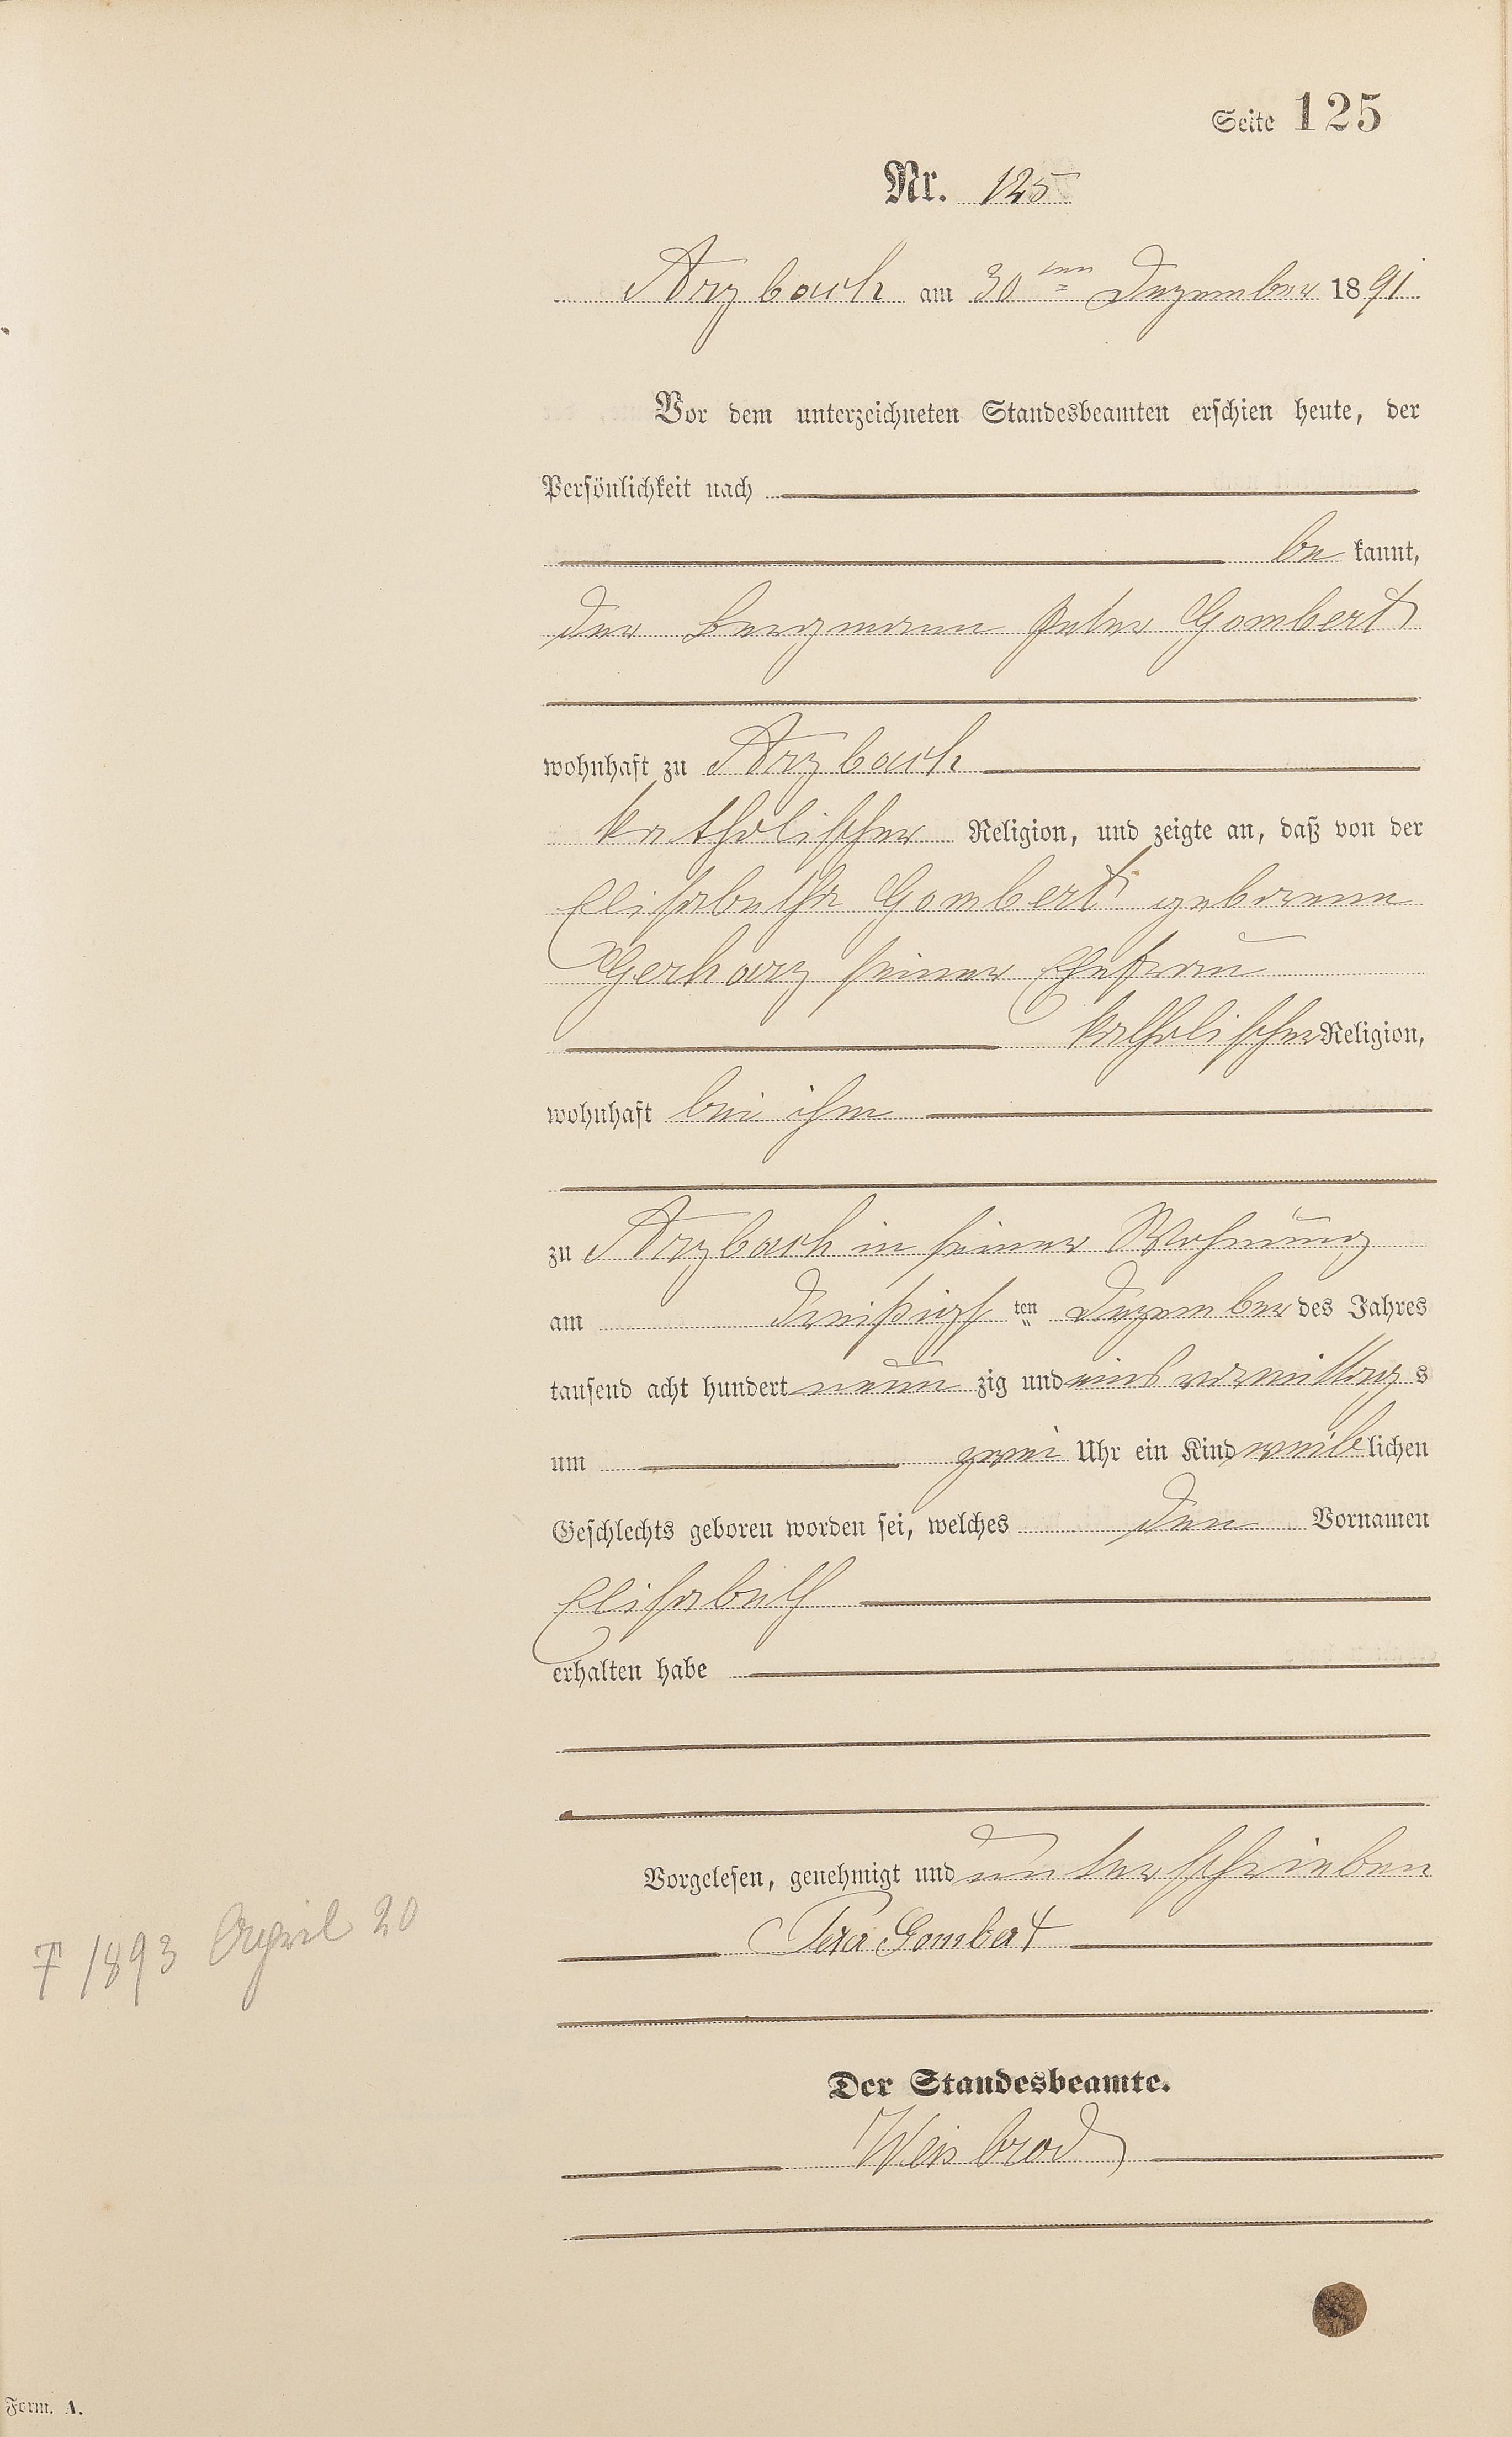 Seite 125
Nr. 125
Arzbach am 30ten Dezember 1891
Vor dem unterzeichneten Standesbeamten erschien heute, der
Persönlichkeit nach
be kannt,
der Bergmann Peter Gombert
wohnhaft zu Arzbach
katholischer Religion, und zeigte an, daß von der
Elisabetha Gombert geborene
Gerharz seiner Ehefrau
katholischer Religion,
wohnhaft bei ihm
zu Arzbach in seiner Wohnung
am dreißigs ten Dezember des Jahres
tausend acht hundert neun zig und eins vormittag s
um zwei Uhr ein Kind weib lichen
Geschlechts geboren worden sei, welches den Vornamen
Elisabeth
erhalten habe
Vorgelesen, genehmigt und unterschrieben
Gombert
† 1893 April 20
Der Standesbeamte.
Weisbrod
Form. A.